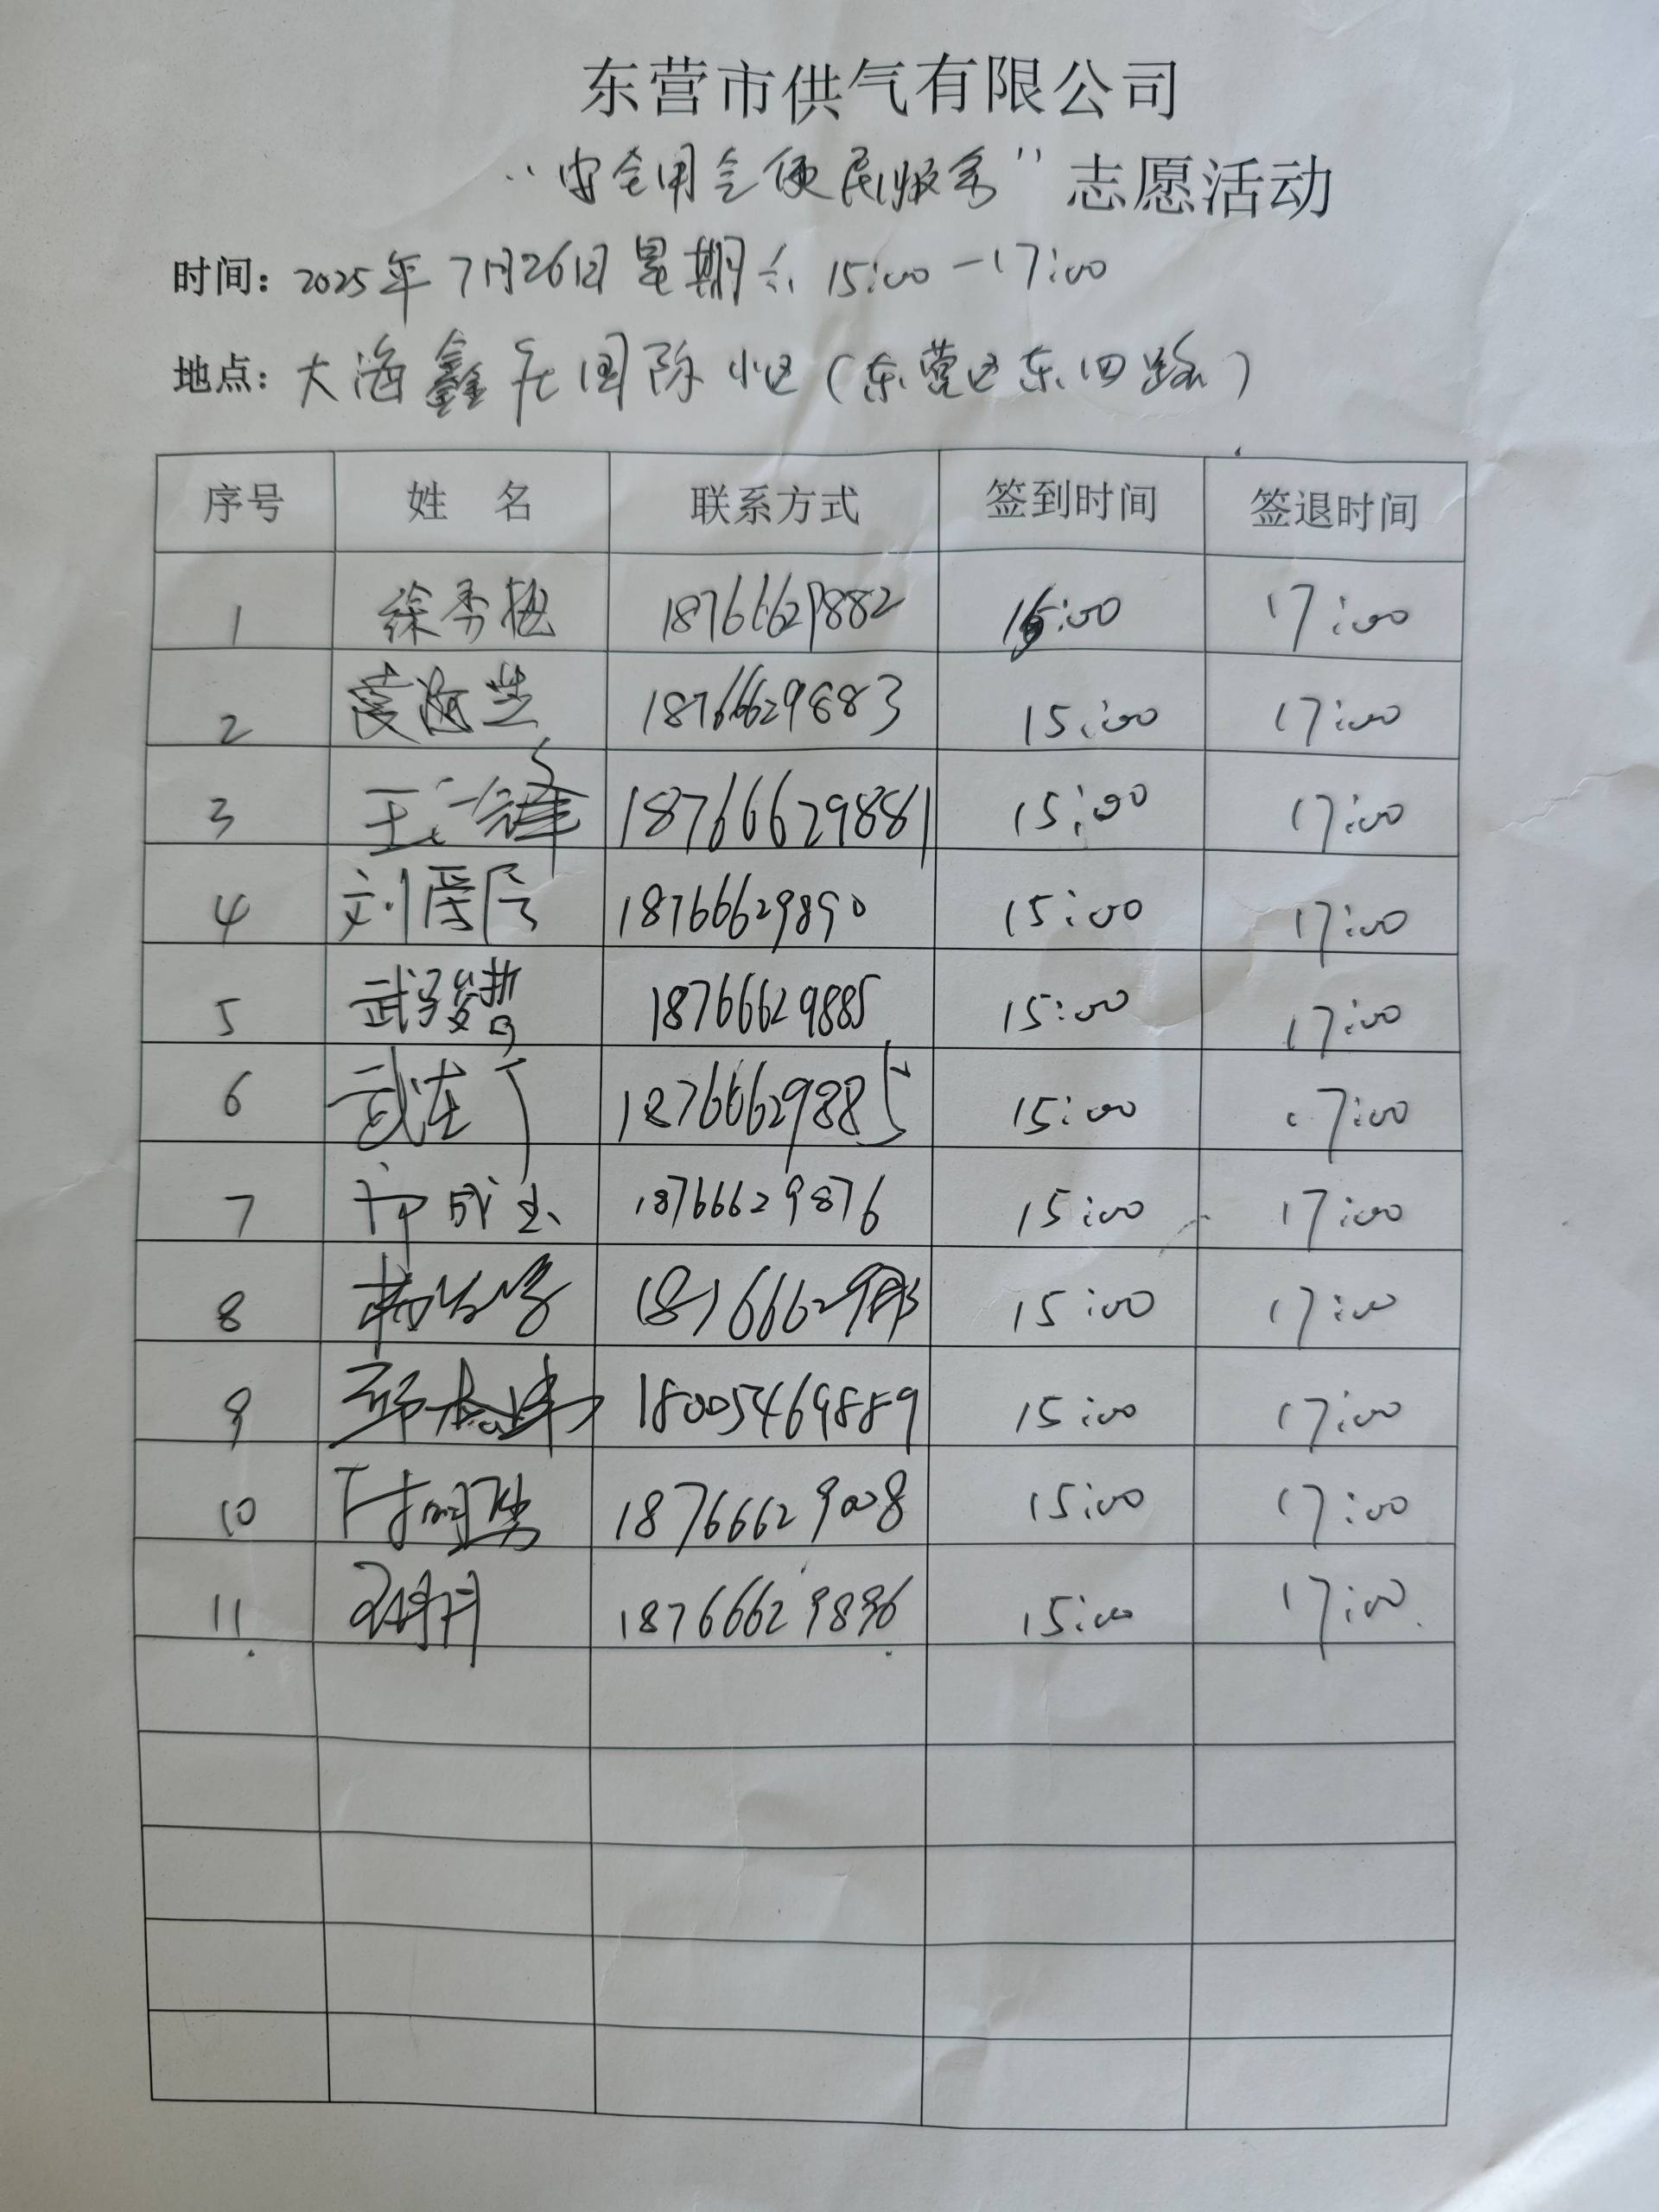 东营市供气有限公司
“安全用气便民服务”志愿活动
时间：2025年7月26日星期六 15:00-17:00
地点：大海鑫 国际小区（东营区东四路）
序号 姓 名 联系方式 签到时间 签退时间
1 徐秀梅 18766629882 15:00 17:00
2 18766629883 15:00 17:00
3 18766629881 15:00 17:00
4 刘 18766629890 15:00 17:00
5 武骏哲 18766629885 15:00 17:00
6 18766629885 15:00 17:00
7 18766629876 15:00 17:00
8 15:00 17:00
9 18005469889 15:00 17:00
10 18766629008 15:00 17:00
11 18766629896 15:00 17:00